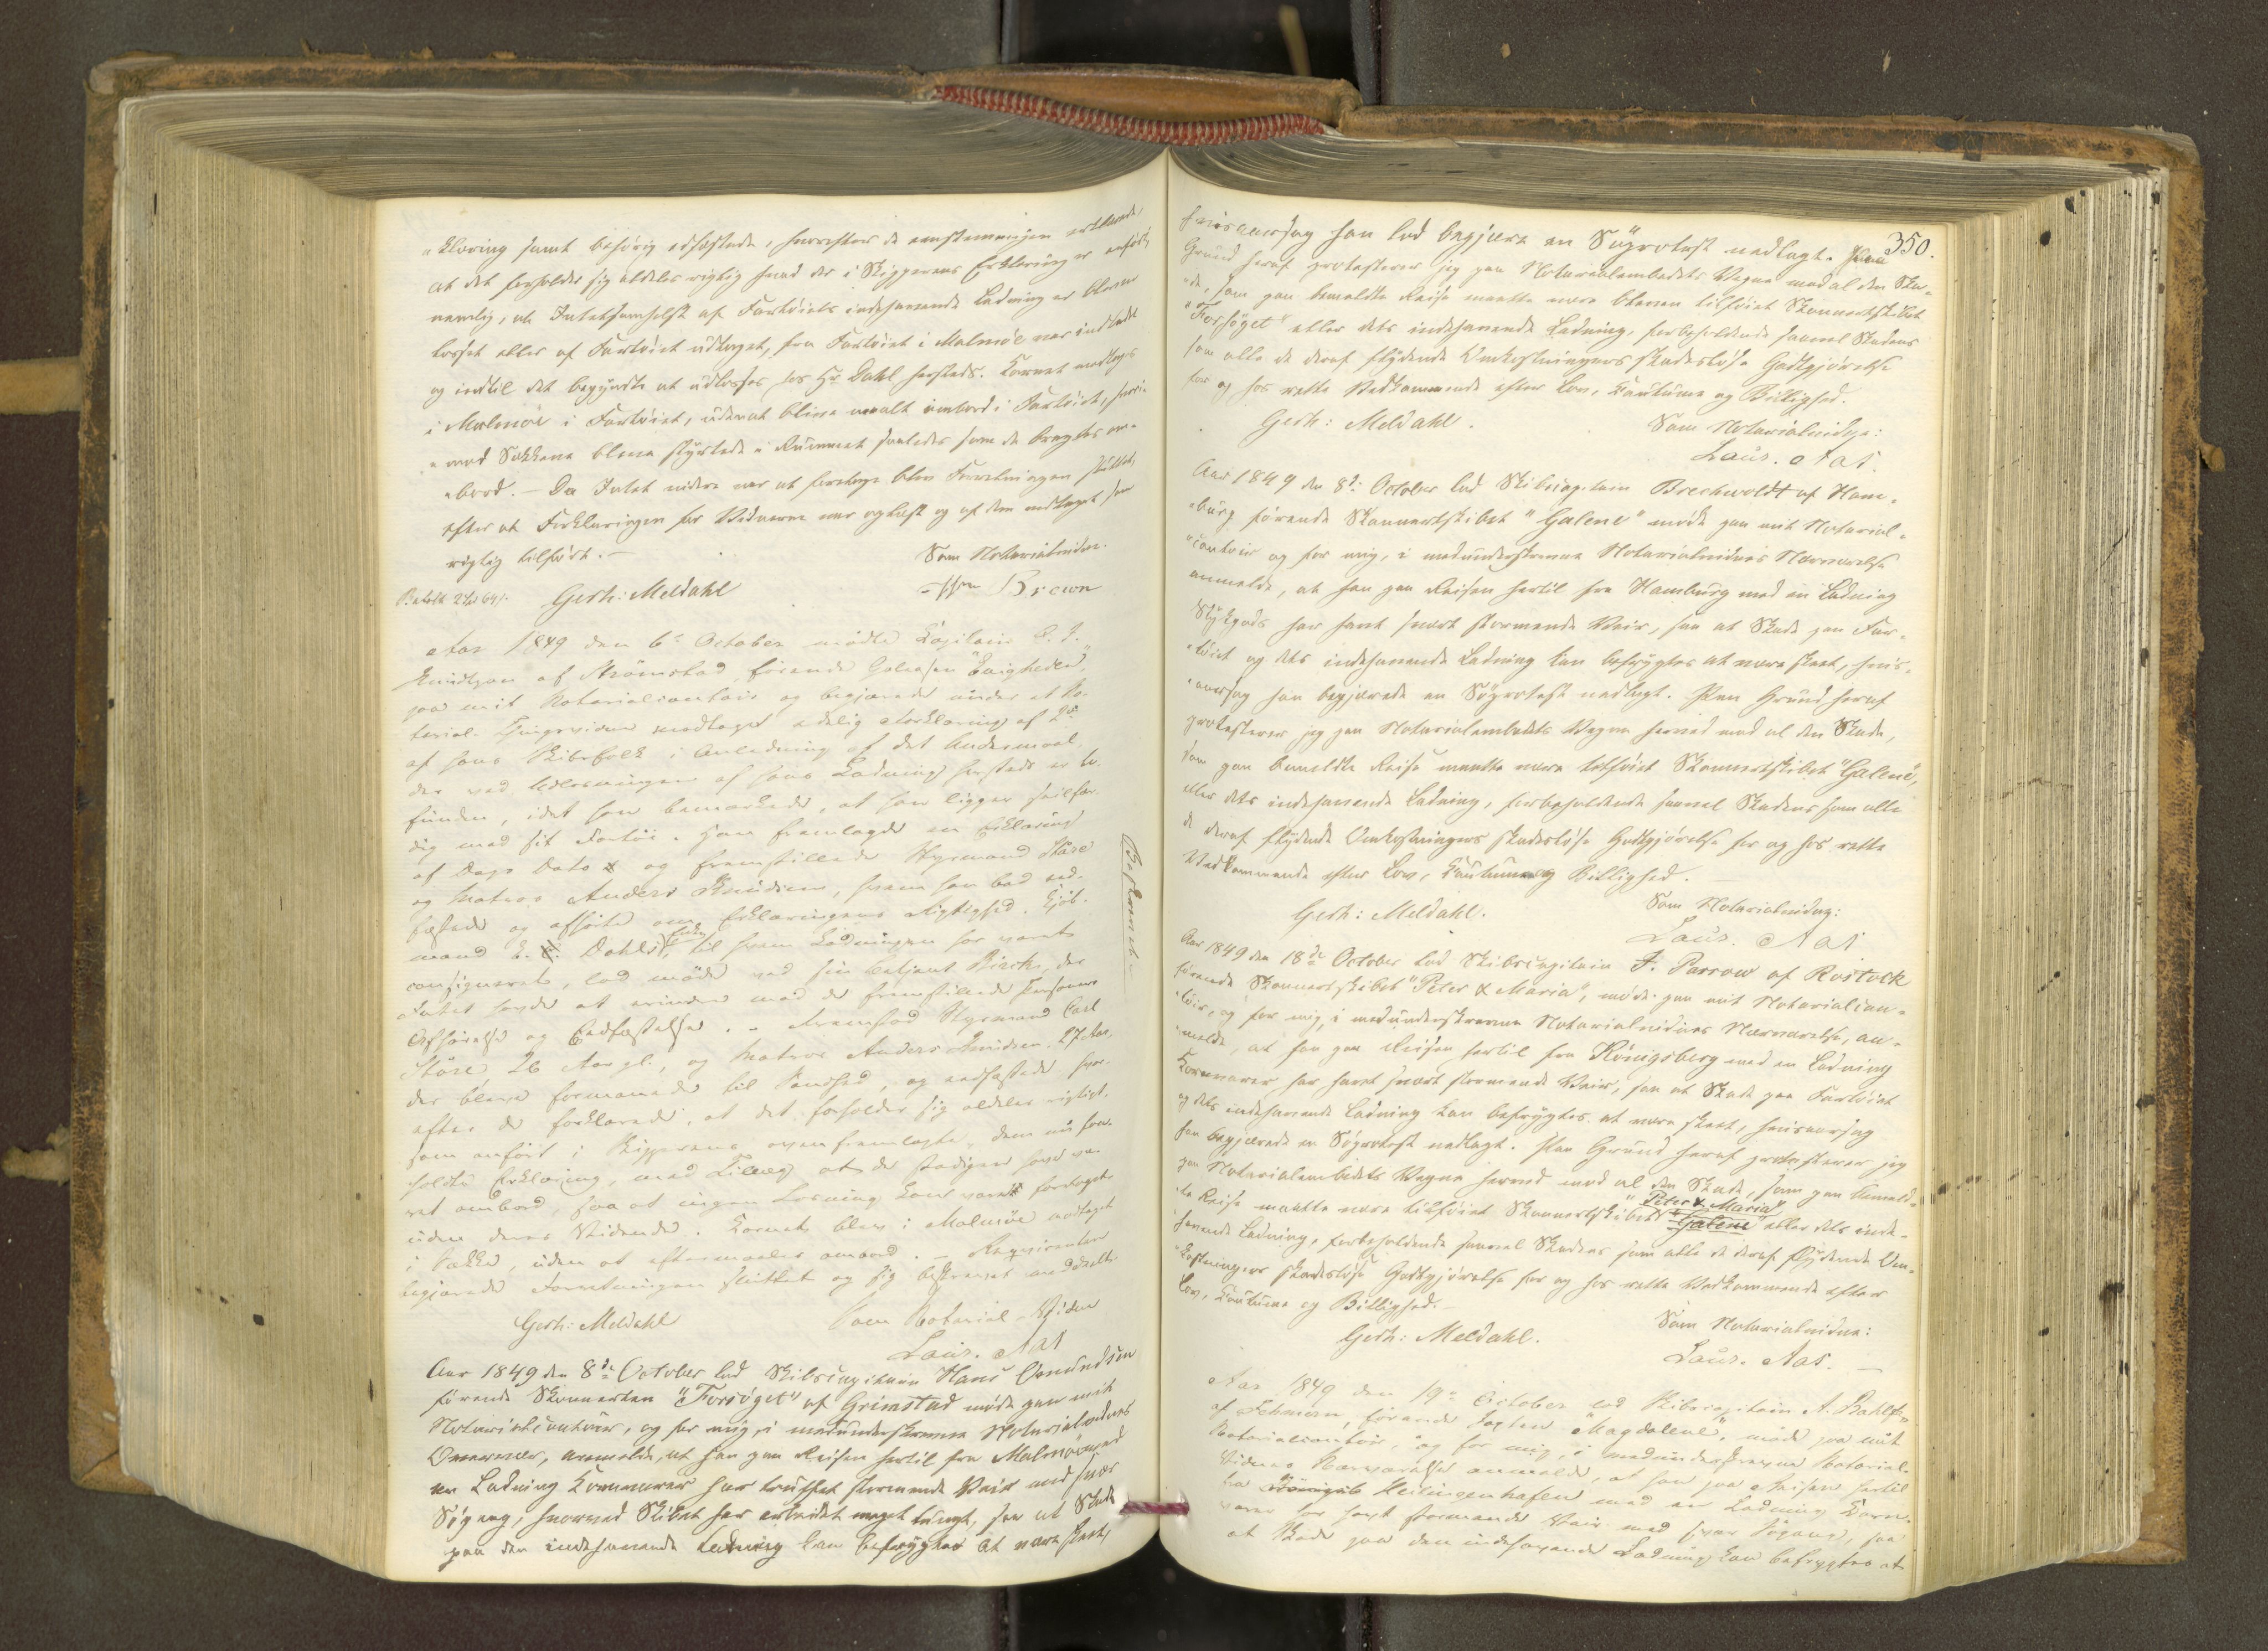 "klæring samt behørig edfæstede, hvorefter de eenstemmigen erklærede,
at det forholder sig aldeles rigtig hvad der i Skipperens Erklæring er anført,
nemlig, at Intetsomhelst af Fartøiets indehavende Ladning er bleven
losset eller af Fartøiet udtaget, fra Fartøiet i Malmöe var indladt
og indtil det begyndte at udlosses hos Hr Dahl hersteds. Kornet modtoges
i Malmöe i Fartøiet, uden at blive maalt ombord i Fartøiet, hvori-
"mod Sækkene bleve styrtede i Rummet saaledes som de bragtes om-
"bord. – Da Intet videre var at foretage blev Forretningen sluttet,
efter at Forklaringen for Vidnerne var oplæst og af dem vedtaget som
rigtig tilført. –
Som Notarialvidne.
Betalt 2 Spd 64 s.
Gerh: Meldahl
Brown
Aar 1849 den 6te October mödte Capitain
Knudtzon af Strömstad, förende Galeasen "Enigheden",
paa mit Notarialcontoir og begjærede under et No-
tarial- Thingsvidne modtaget edelig Forklaring af 2de
af hans Skibsfolk i Anledning af det Undermaal,
der ved Udlosningen af hans Ladning hersteds er be-
funden, idet han bemærkede, at han ligger seilfær-
dig med sit Fartöi. Han fremlagde en Erklæring
af Dags Dato og fremstillede Styrmand Ståre
og Matros Anders Knudsen, hvem han bad eed-
fæstede og afhørte om Erklæringens Rigtighed. Kjöb-
mand Dahls Enke, til hvem Ladningen har været
consigneret, lod möde ved sin Betjent Birch, der
Intet havde at erindre mod de fremstillede Personers
Afhörelse og Eedfæstelse. – Fremstod Styrmand Carl
Ståre 26 Aar gl., og Matros Anders Knudsen 27 Aar,
der bleve formanede til Sandhed, og eedfæstede hvor-
efter de forklarede, at det forholder sig aldeles rigtigt,
som anført i Skipperens ovenfremlagte, dem nu fore-
holdte Erklæring, med Tillæg at de stadigen have væ-
ret ombord, saa at ingen Losning kan være foretaget
uden deres Vidende. Kornet blev i Malmöe modtaget
i Sække, uden at eftermaales ombord. – Reqvirenten
begjærede Forretningen sluttet og sig beskrevet meddeelt.
Beskreven
Gerh: Meldahl
Som Notarial-Vidne
Laur. Aas
Aar 1849 den 8de October lod Skibscapitain Hans Omundsen
förende Skonnerten "Forsöget" af Grimstad möde paa mit
Notarialcontoir, og for mig, i medunderskrevne Notarialvidnes
Overvær, anmelde, at han paa Reisen hertil fra Malmöe med
en Ladning Kornvarer har truffet stormende Veir med svær
Sögang, hvorved Skibet har arbeidet meget tungt, saa at Skade
paa den indehavende Ladning kan befrygtes at være skeet,
350.
hvisaarsag han lod begjære en Söprotest nedlagt. Paa
Grund heraf protesterer jeg paa Notarialembedets Vegne mod al den Ska-
"de, som paa bemeldte Reise maatte være bleven tilföiet Skonnertskibet
"Forsöget" eller dets indehavende Ladning, forbeholdende saavel Skadens
som alle de deraf flydende Omkostningers skadeslöse Godtgjörelse
for og hos rette Vedkommende efter Lov, Coutume og Billighed.
Gerh: Meldahl.
Som Notarialvidne:
Laur. Aas.
Aar 1849 den 8de October lod Skibscapitain Brechwoldt af Ham-
"burg förende Skonnertskibet "Galene" möde paa mit Notarial-
"contoir og for mig, i medunderskrevne Notarialvidnes Nærværelse
anmelde, at han paa Reisen hertil fra Hamburg med en Ladning
Stykgods har havt svært stormende Veir, saa at Skade paa Far-
"töiet og dets indehavende Ladning kan befrygtes at være skeet, hvis-
"aarsag han begjærede en Söprotest nedlagt. Paa Grund heraf
protesterer jeg paa Notarialembedets Vegne herved mod al den Skade,
som paa bemeldte Reise maatte være tilföiet Skonnertskibet "Galene",
eller dets indehavende Ladning, forbeholdende saavel Skadens som alle
de deraf flydende Omkostningers skadeslöse Godtgjörelse for og hos rette
Vedkommende efter Lov, Coutume og Billighed.
Gerh: Meldahl.
Som Notarialvidne:
Laur. Aas
Aar 1849 den 18de October lod Skibscapitain J. Parrow af Rostock
förende Skonnertskibet "Peter & Maria", möde paa mit Notarialcon-
"toir, og for mig, i medunderskrevne Notarialvidnes Nærværelse, an-
"melde, at han paa Reisen hertil fra Königsberg med en Ladning
Kornvarer har havt svært stormende Veir, saa at Skade paa Fartöiet
og dets indehavende Ladning kan befrygtes at være skeet, hvisaarsag
han begjærede en Söprotest nedlagt. Paa Grund heraf protesterer jeg
paa Notarialembedets Vegne herved mod al den Skade, som paa bemeld-
"te Reise maatte være tilföiet Skonnertskibet "Peter & Maria" "Galene" eller dets inde-
"havende Ladning, forbeholdende saavel Skadens som alle de deraf flydende Om-
"kostningers skadeslöse Godtgjörelse for og hos rette Vedkommende efter
Lov, Coutume og Billighed. –
Gerh: Meldahl.
Som Notarialvidne:
Laur. Aas. –
Aar 1849 den 19de October lod Skibscapitain A. Bahlf
af Fehmern, förende Jagten "Magdalene", möde paa mit
Notarialcontoir, og for mig, i medunderskrevne Notarial-
Vidnes Nærværelse anmelde, at han paa Reisen hertil
fra Heiligenhafen med en Ladning Korn-
varer har havt stormende Veir med svær Sögang, saa
at Skade paa den indehavende Ladning kan befrygtes at